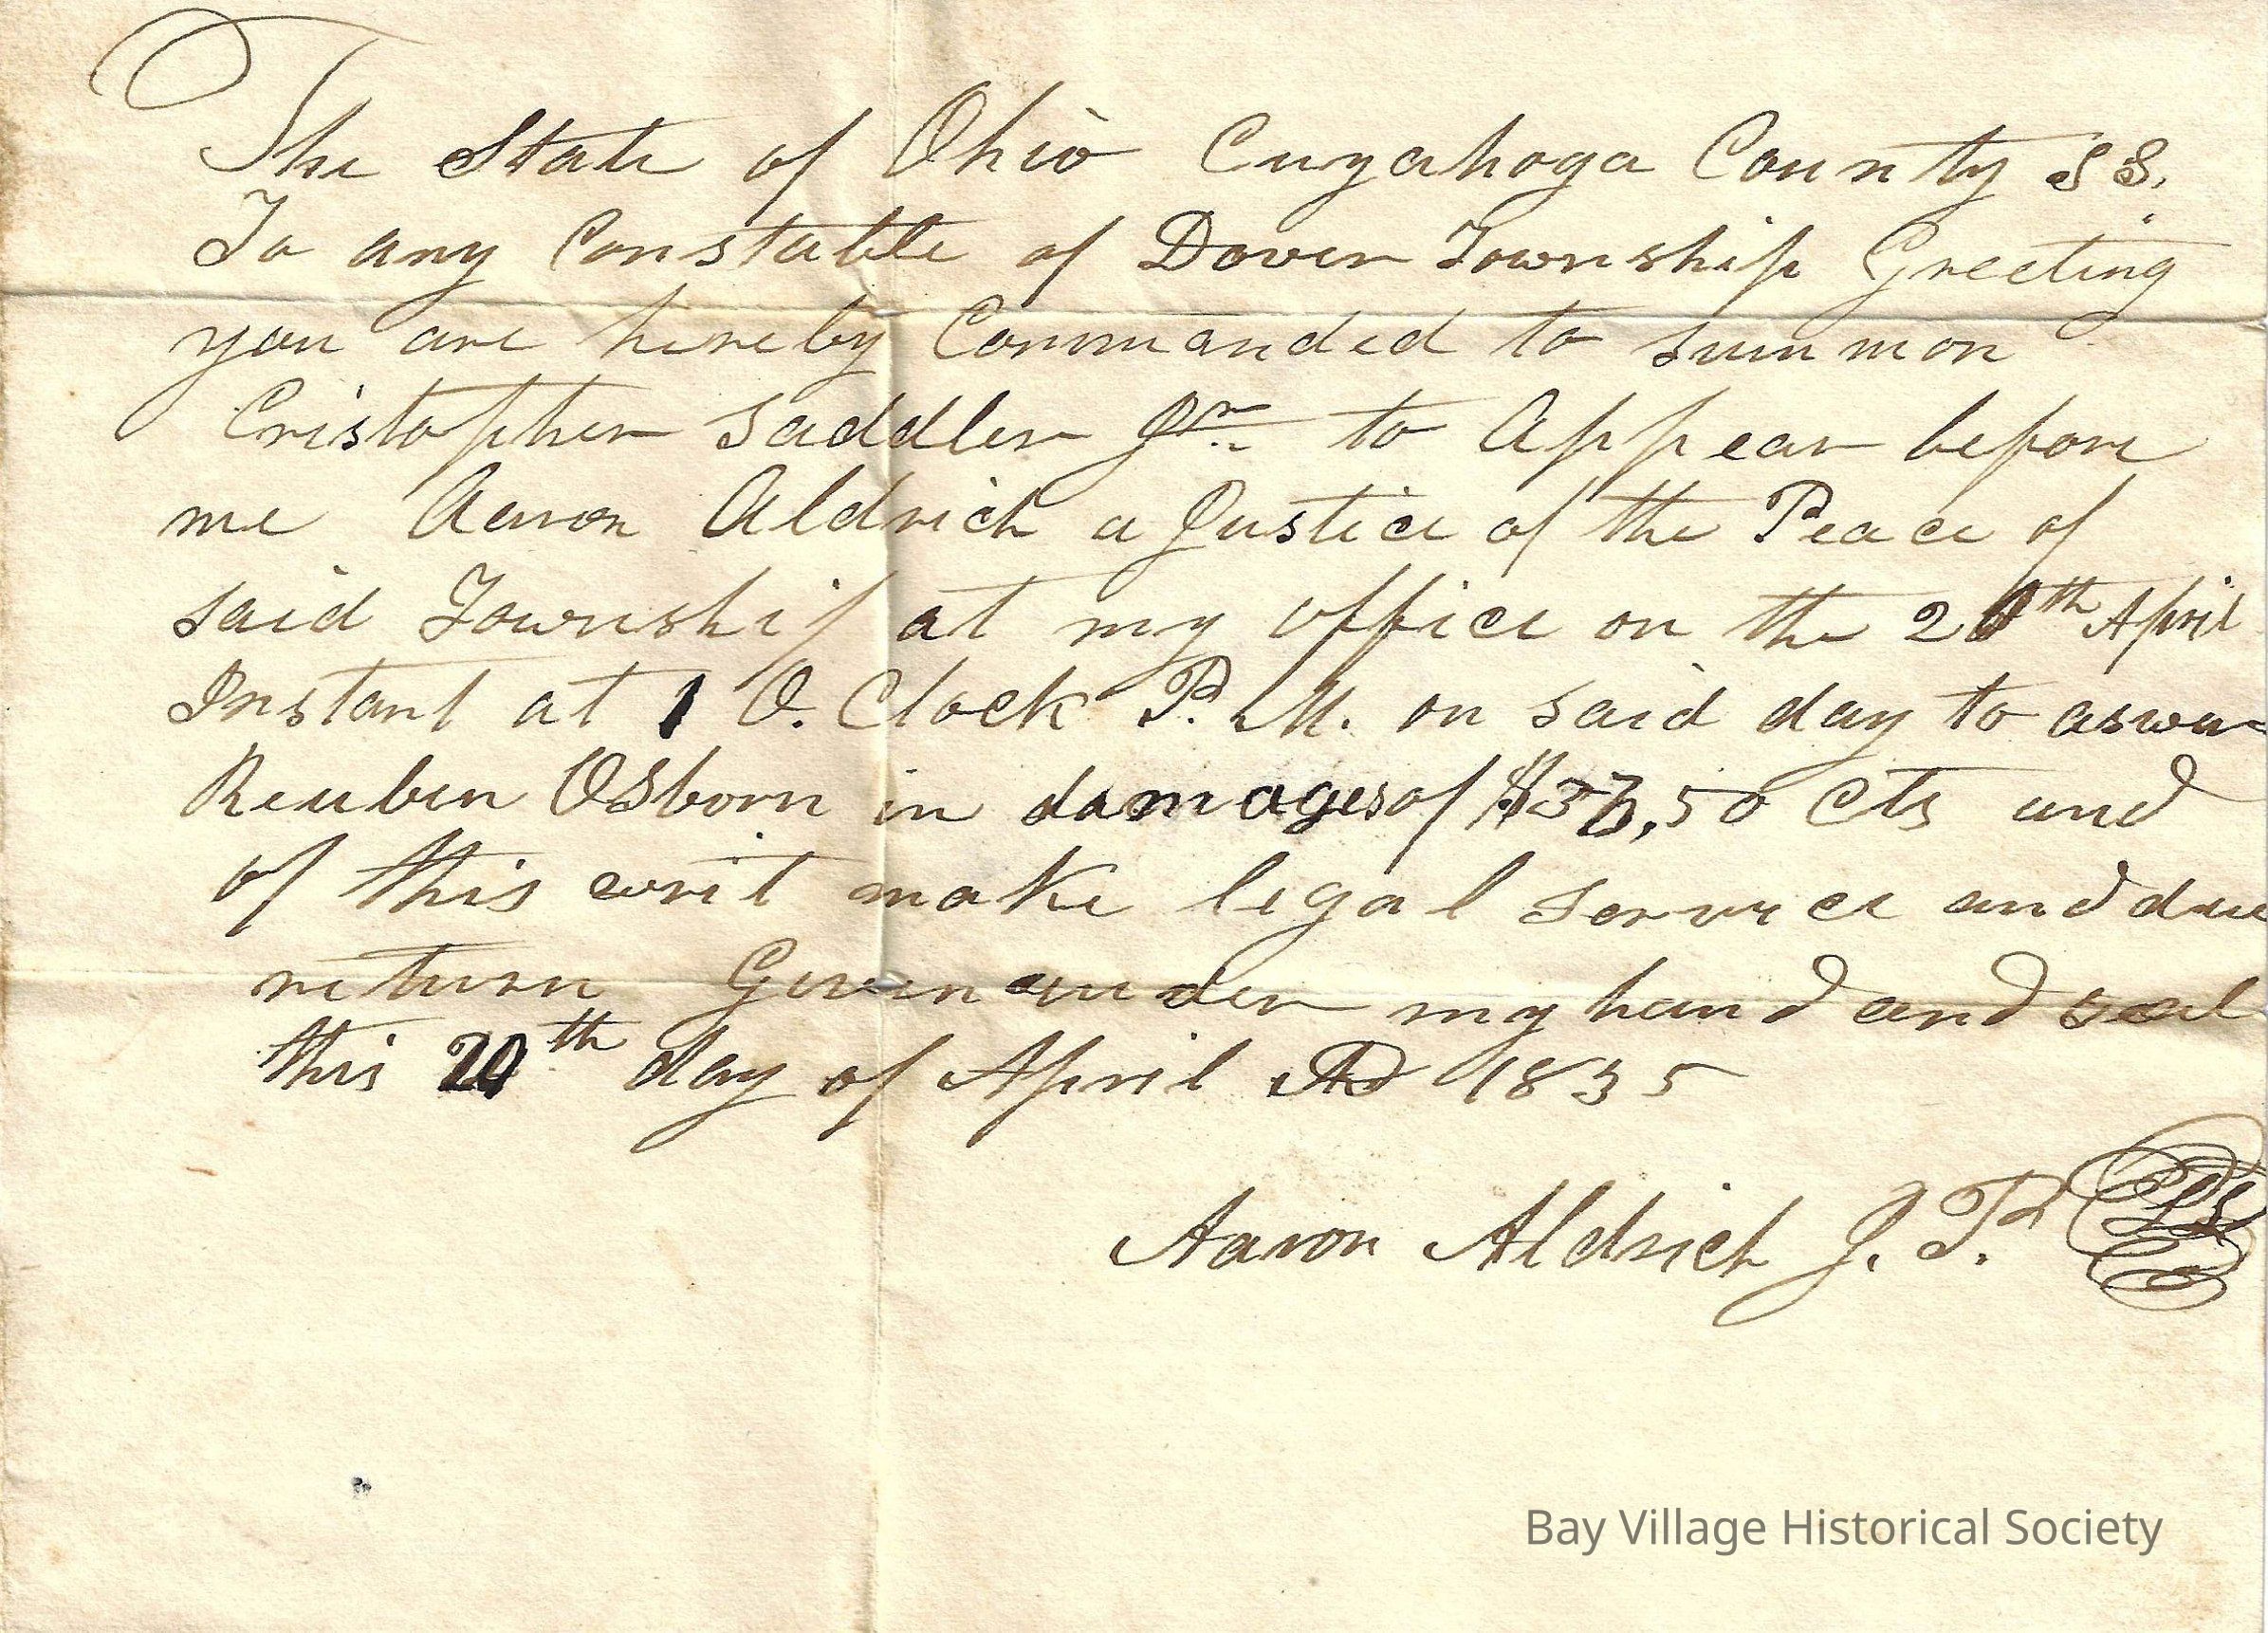 The State of Ohio Cuyahoga County SS.
To any Constable of Dover Township Greeting
you are hereby Commanded to summon
Cristopher Saddler Jr. to Appear before
me Aaron Aldrich a Justice of the Peace of
said Township at my office on the 20th April
Instant at 1 O. Clock P. M. on said day to aswer
Reuben Osborn in damages of 50 Cts and
of this writ make legal Service and due
return Given under my hand and seal
this 20th day of April AD 1835
Aaron Aldrich J. P.
Bay Village Historical Society